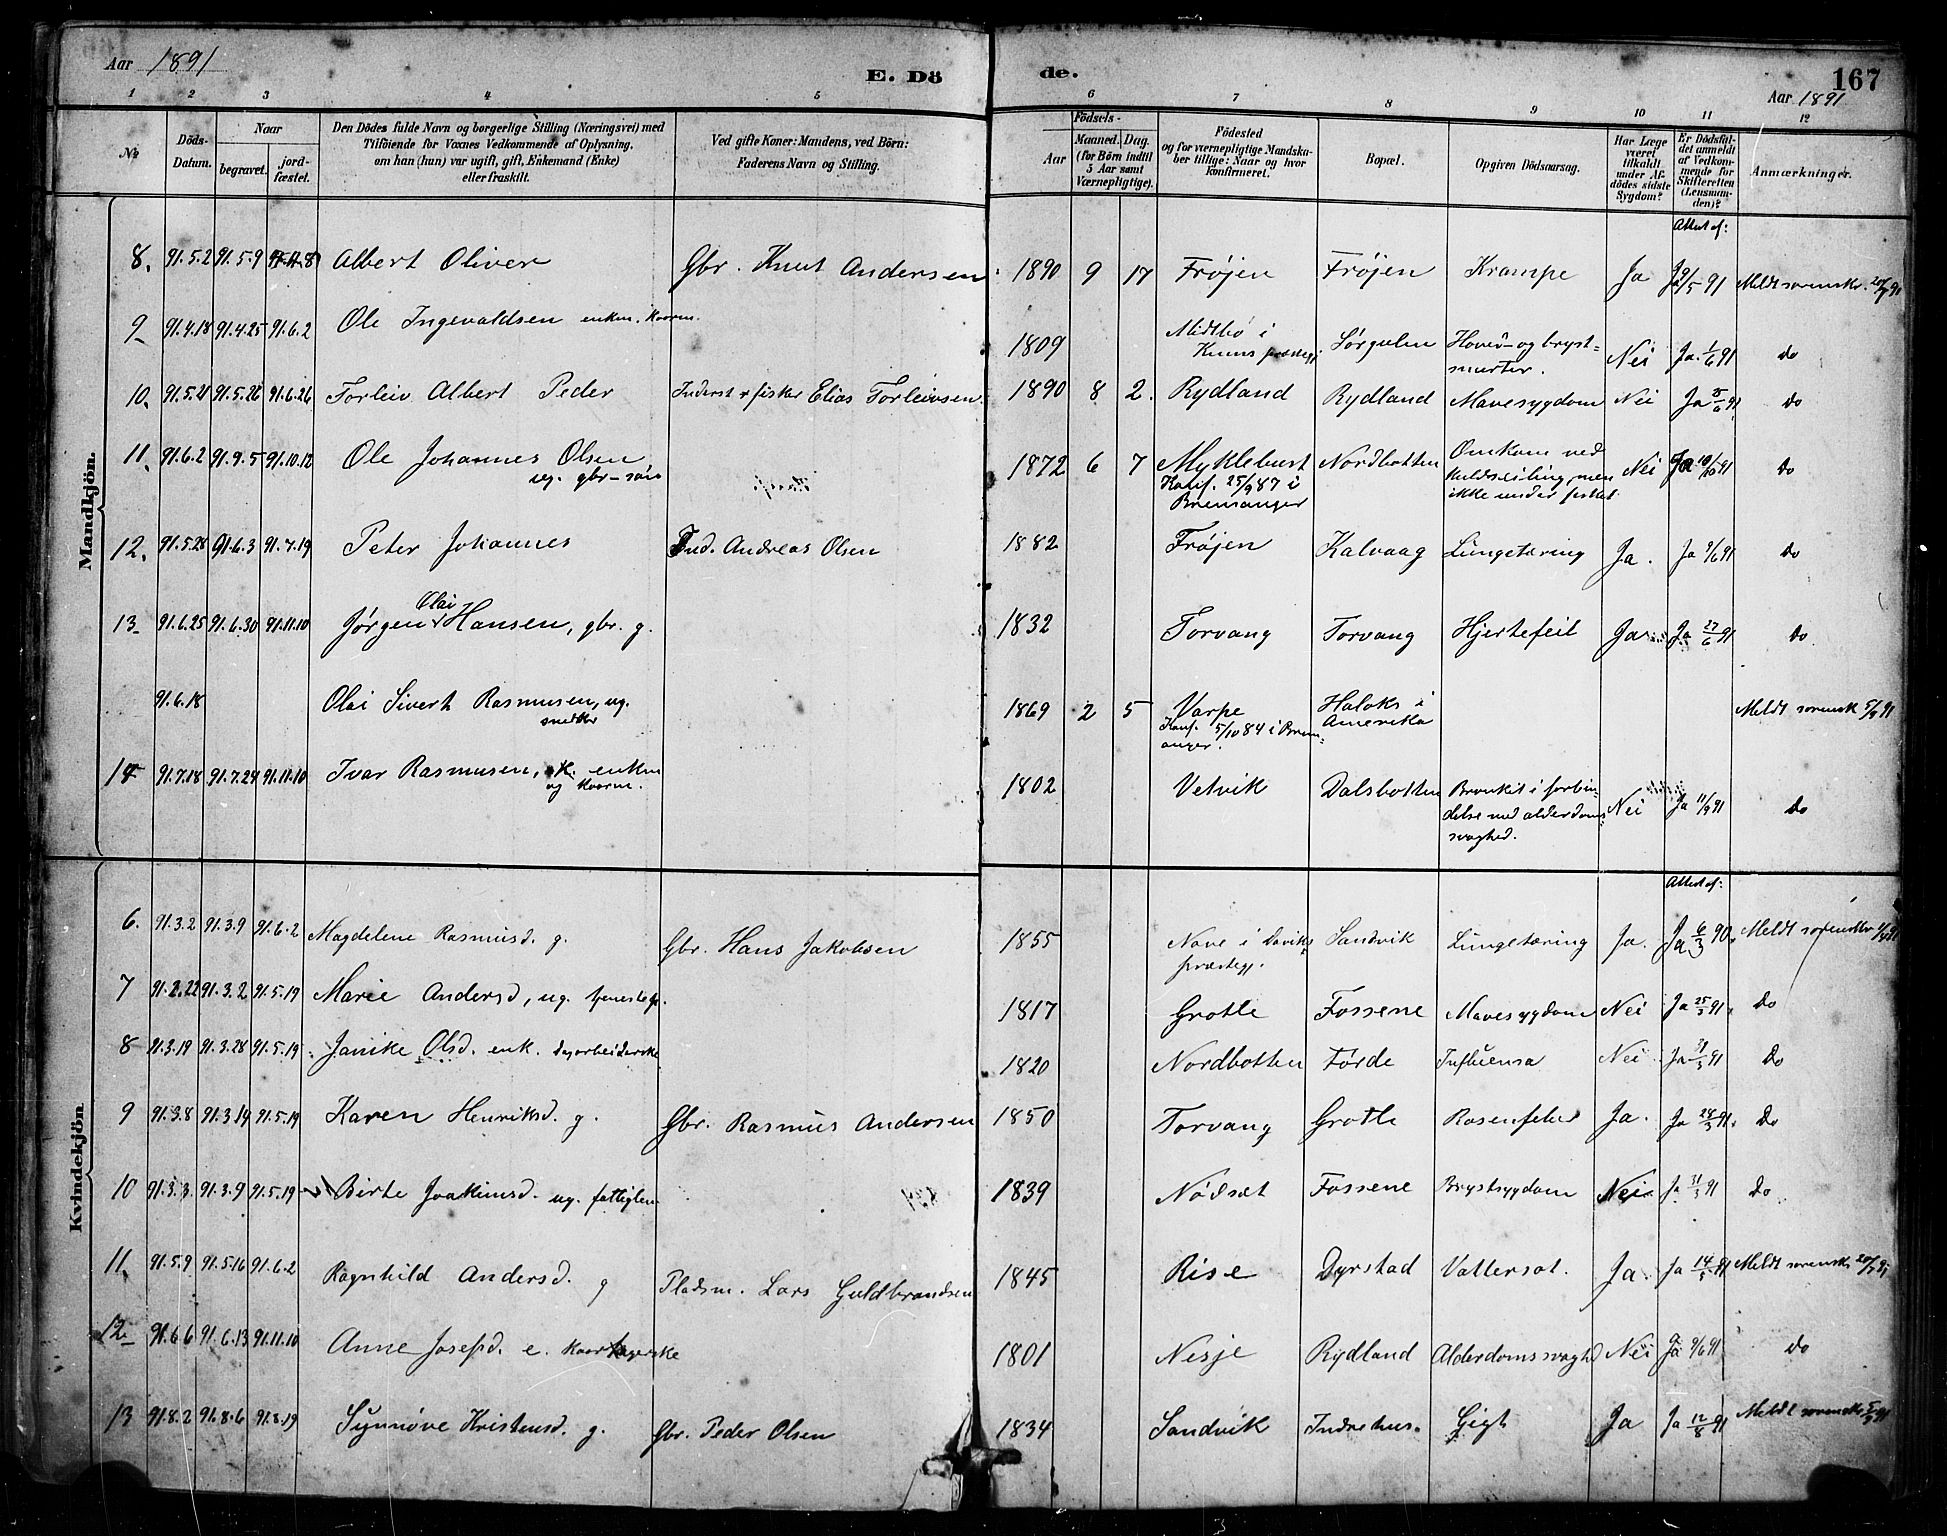 Aar 1891
E. Dö
de.
167
Aar 1891
1 2 3 4 5 6 7 8 9 10 11 12
№
Döds-Datum.
Naar
begravet.
jord-fæstet.
Den Dödes fulde Navn og borgerlige Stilling (Næringsvei) med
Tilföiende for Voxnes Vedkommende af Oplysning,
om han (hun) var ugift, gift, Enkemand (Enke)
eller fraskilt.
Ved gifte Koner: Mandens, ved Börn:
Faderens Navn og Stilling.
Födsels-
Aar
Maaned. Dag.
(for Börn indtil 5 Aar samt Værnepligtige).
Födested
og for værnepligtige Mandskaber tillige: Naar og hvor konfirmeret.
Bopæl.
Opgiven Dödsaarsag.
Har Læge været tilkaldt under Afdödes sidste Sygdom?
Er Dödsfaldet anmeldt af Vedkommende for Skifteretten (Lensmanden)?
Anmærkninger.
Mandkjön.
Attest af:
8. 91.5.2 91.5.9 Albert Oliver Gbr. Knut Andersen 1890 9 17 Frøjen Frøjen Krampe Ja Ja 9/5 91 Meldt sorenskr.
9 91.4.18 91.4.25 91.6.2 Ole Ingevaldsen enkm. 1809 Midtbø i Kinns præstegj. Sørgulen Hoved- og brystsmerter. Nei Ja 1/6 91 do
10. 91.5.21 91.5.26 91.6.26 Torleiv Albert Peder Inderst & fisker Elias Torleivsen. 1890 8 2. Rydland Rydland Mavesygdom Nei Ja 91 do
11. 91.6.2 91.9.5 91.10.12 Ole Johannes Olsen ug. gbr-søn 1872 6 7 Myklebust Konf. 25/9 87 i Bremanger Nordbotten Omkom ved Kuldseiling, men ikke under fisket. Nei Ja 91 do
12. 91.5.28 91.6.3 91.7.19 Peter Johannes Ind. Andreas Olsen 1882 Frøjen Kalvaag Lungetæring Ja. Ja 9/6 91 do
13 91.6.25 91.6.30 91.11.10 Jørgen Olai Hansen, gbr. g. 1832 Torvang Torvang Hjertefeil Ja Ja 27/6 91 do
91.6.18 Olai Sivert Rasmusen, ug. snedker 1869 2 5 Varpe Konf. 5/10 84 i Bremanger. i Amerika Meldt sorensk 91
14 91.7.18 91.7.24 91.11.10 Ivar Rasmusen, enkm og 1802 Vetvik Dalsbotten Bronkit i forbindelse med alderdomssvaghed. Nei Ja 11/9 91 do
Kvindekjön.
Attest af:
6. 91.3.2 91.3.9 91.6.2 Magdelene Rasmusd. g. Gbr. Hans Jakobsen 1855 Nave i Daviks præstegj. Sandvik Lungetæring Ja. Ja 6/3 90. Meldt sorenskr
7 91.2.22 91.3.2 91.5.19 Marie Andersd, ug. 1817 Grotle Fossene Mavesygdom Nei Ja 25/3 91. Do
8 91.3.19 91.3.28 91.5.19 Janike Olsd. enk. dagarbeiderske 1820 Nordbotten Førde Influensa Nei Ja 31/3 91 Do
9 91.3.8 91.3.14 91.5.19 Karen Henriksd. g. Gbr. Rasmus Andersen 1850 Torvang Grotle Rosenfeber Ja. Ja 28/3 91. Do
10 91.3.3 91.3.9 91.5.19 Birte Joakimsd. ug. fattiglem 1839 Nødset Fossene Brystsygdom Nei Ja 31/3 91 Do
11. 91.5.9 91.5.16 91.6.2 Ragnhild Andersd. g Pladsm. Lars Guldbrandsen 1845 Rise Dyrstad Vattersot. Ja Ja 14/5 91 Meldt sorensk.
12 91.6.6 91.6.13 91.11.10 Anne Josefsd. e. 1801 Nesje Rydland Alderdomssvaghd Nei Ja 9/6 91 do
13 91.8.2 91.8.6 91.8.19 Synnøve Kristensd. g. Gbr. Peder Olsen 1834 Sandvik Indrehus. Gigt Ja Ja 12/8 91 Meldt sorensk